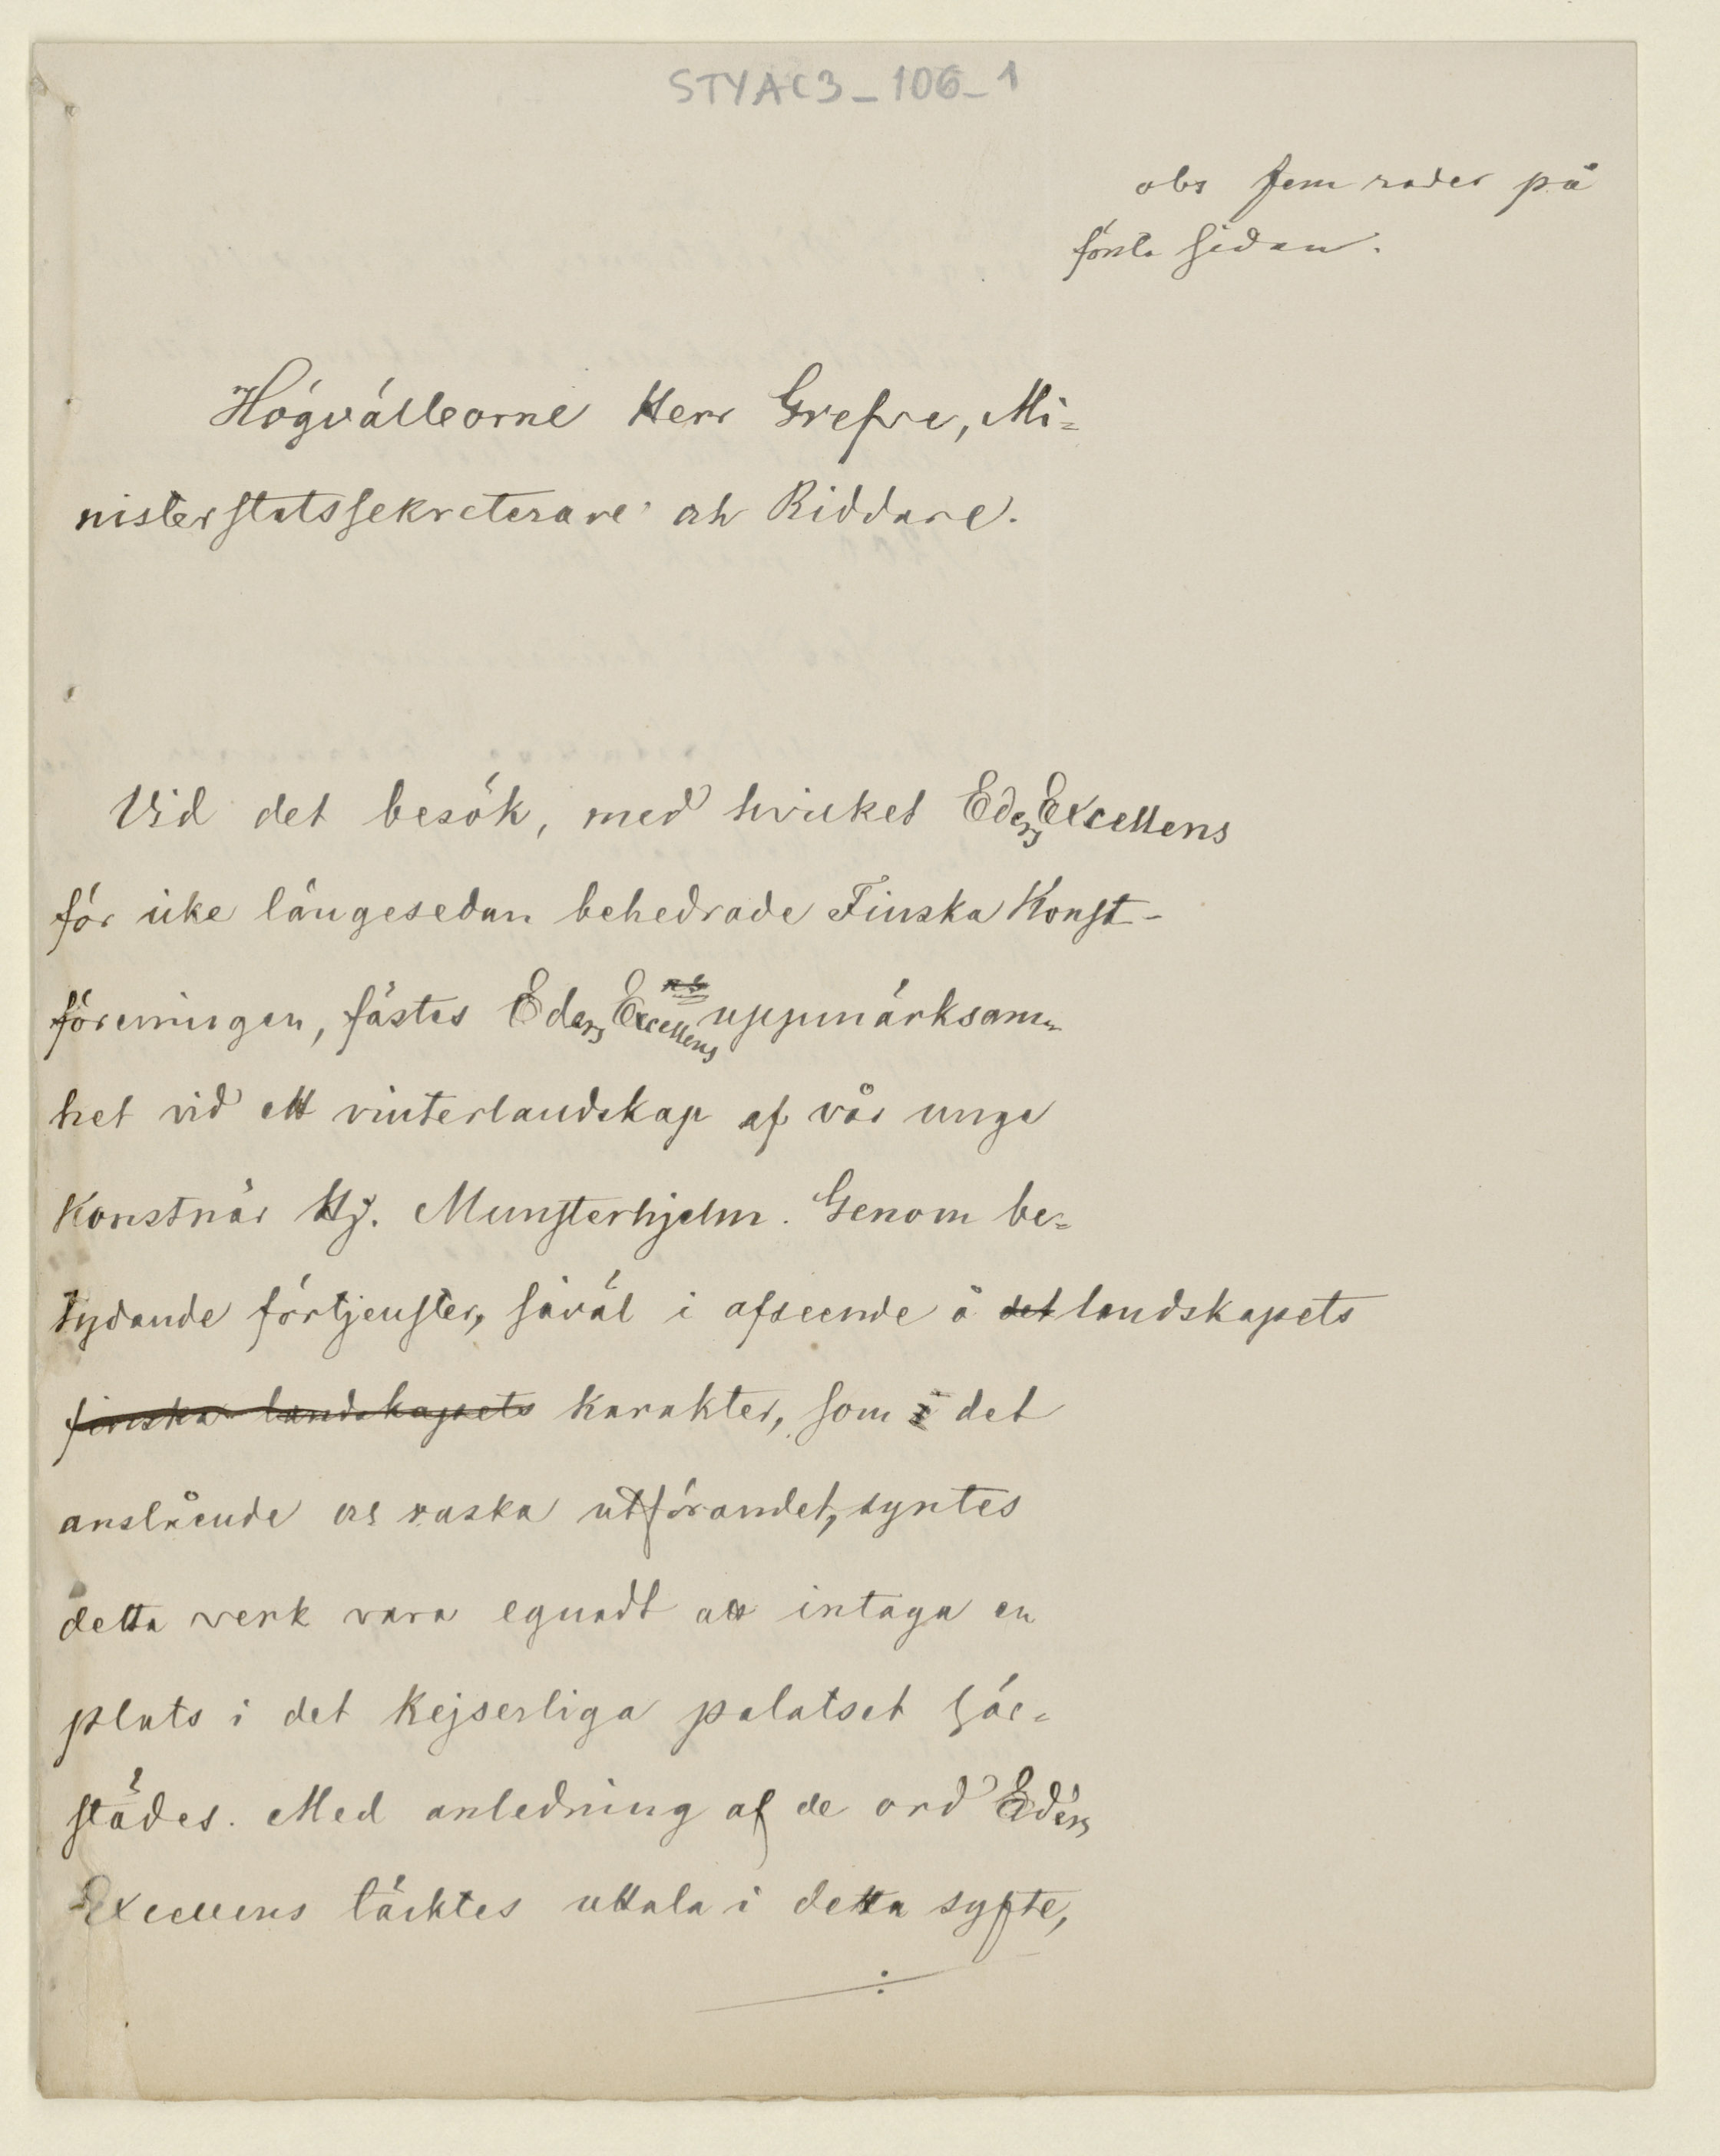 STYAC3_106_1
obs fem rader på
första sidan.
Högvälborne Herr Grefve, Mi=
nisterstatssekreterare och Riddare.
Vid det besök, med hvilket Eders Excellens
för icke längesedan behedrade Finska Konst-
föreningen, fästes Eders Excellens uppmärksam-
het vid ett vinterlandskap af vår unge
Konstnär Hj. Munsterhjelm. Genom be=
tydande förtjenster, såväl i afseende å det landskapets
finska landskapets karakter, som i det
anslående och raska utförandet, syntes
detta verk vara egnadt att intaga en
plats i det Kejserliga palatset här=
städes. Med anledning af de ord Eders
Excellens täcktes uttala i detta syfte,